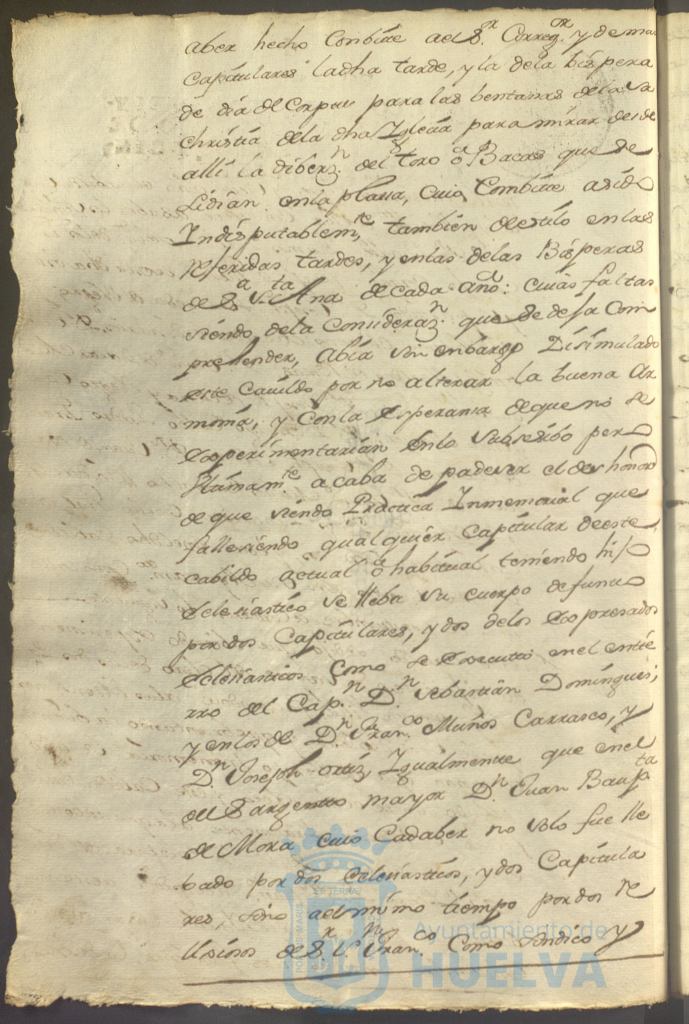 aber hecho Conbite ael Sr. Corregor. y demas
Capitulares ladha tarde, y la dela bispera
de dia de Corpus para las bentanas dela sa
christia dela dha Iglecia para mirar desde
alli la diberzn. del toro o Bacas que se
Lidian en la plassa, cuio Combite a sido
Indisputablemte. tambien de estilo en las
referidas tardes, y en las delas Bisperas
de Sa. Sta. Ana de cada año: cuias faltas
siendo dela Considerazn. que se dejа Com
prehender, abia sin enbargo Disimulado
este Cavildo por no alterar la buena Ar
monia, y con la Esperansa de que no se
Experimentarian en lo Subsesibo pero
Ultimamte. acaba de padeser el des honor
de que siendo Practica Inmemorial que
fallesiendo qualquier Capitular de este
cabildo actual o habitual teniendo hijo
Eclesiastico se lleba su cuerpo defunto
por dos Capitulares, y dos delos Expresados
Eclesiasticos Como se Executó en el entie
rro del Capn. Dn. Sebastian Domingues,
y en los de Dn. Franco. Muños Carrasco, y
Dn. Joseph Ortiz, Igualmente que en el
del Sargento mayor Dn. Juan Bapta.
de Mora cuio Cadaber no solo fue lle
bado por dos Eclesiasticos, y dos Capitula
res, sino al mismo tiempo por dos Re
ligiosos de Sr. Sn. Franco. Como Sindico y
Ayuntamiento de
HUELVA